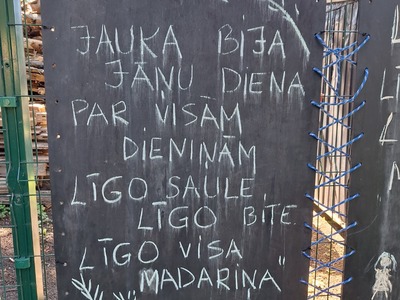 JAUKA BIJA
JĀŅU DIENA
PAR VISĀM
DIENIŅĀM
LĪGO SAULE
LĪGO BITE
LĪGO VISA
MADARIŅA"